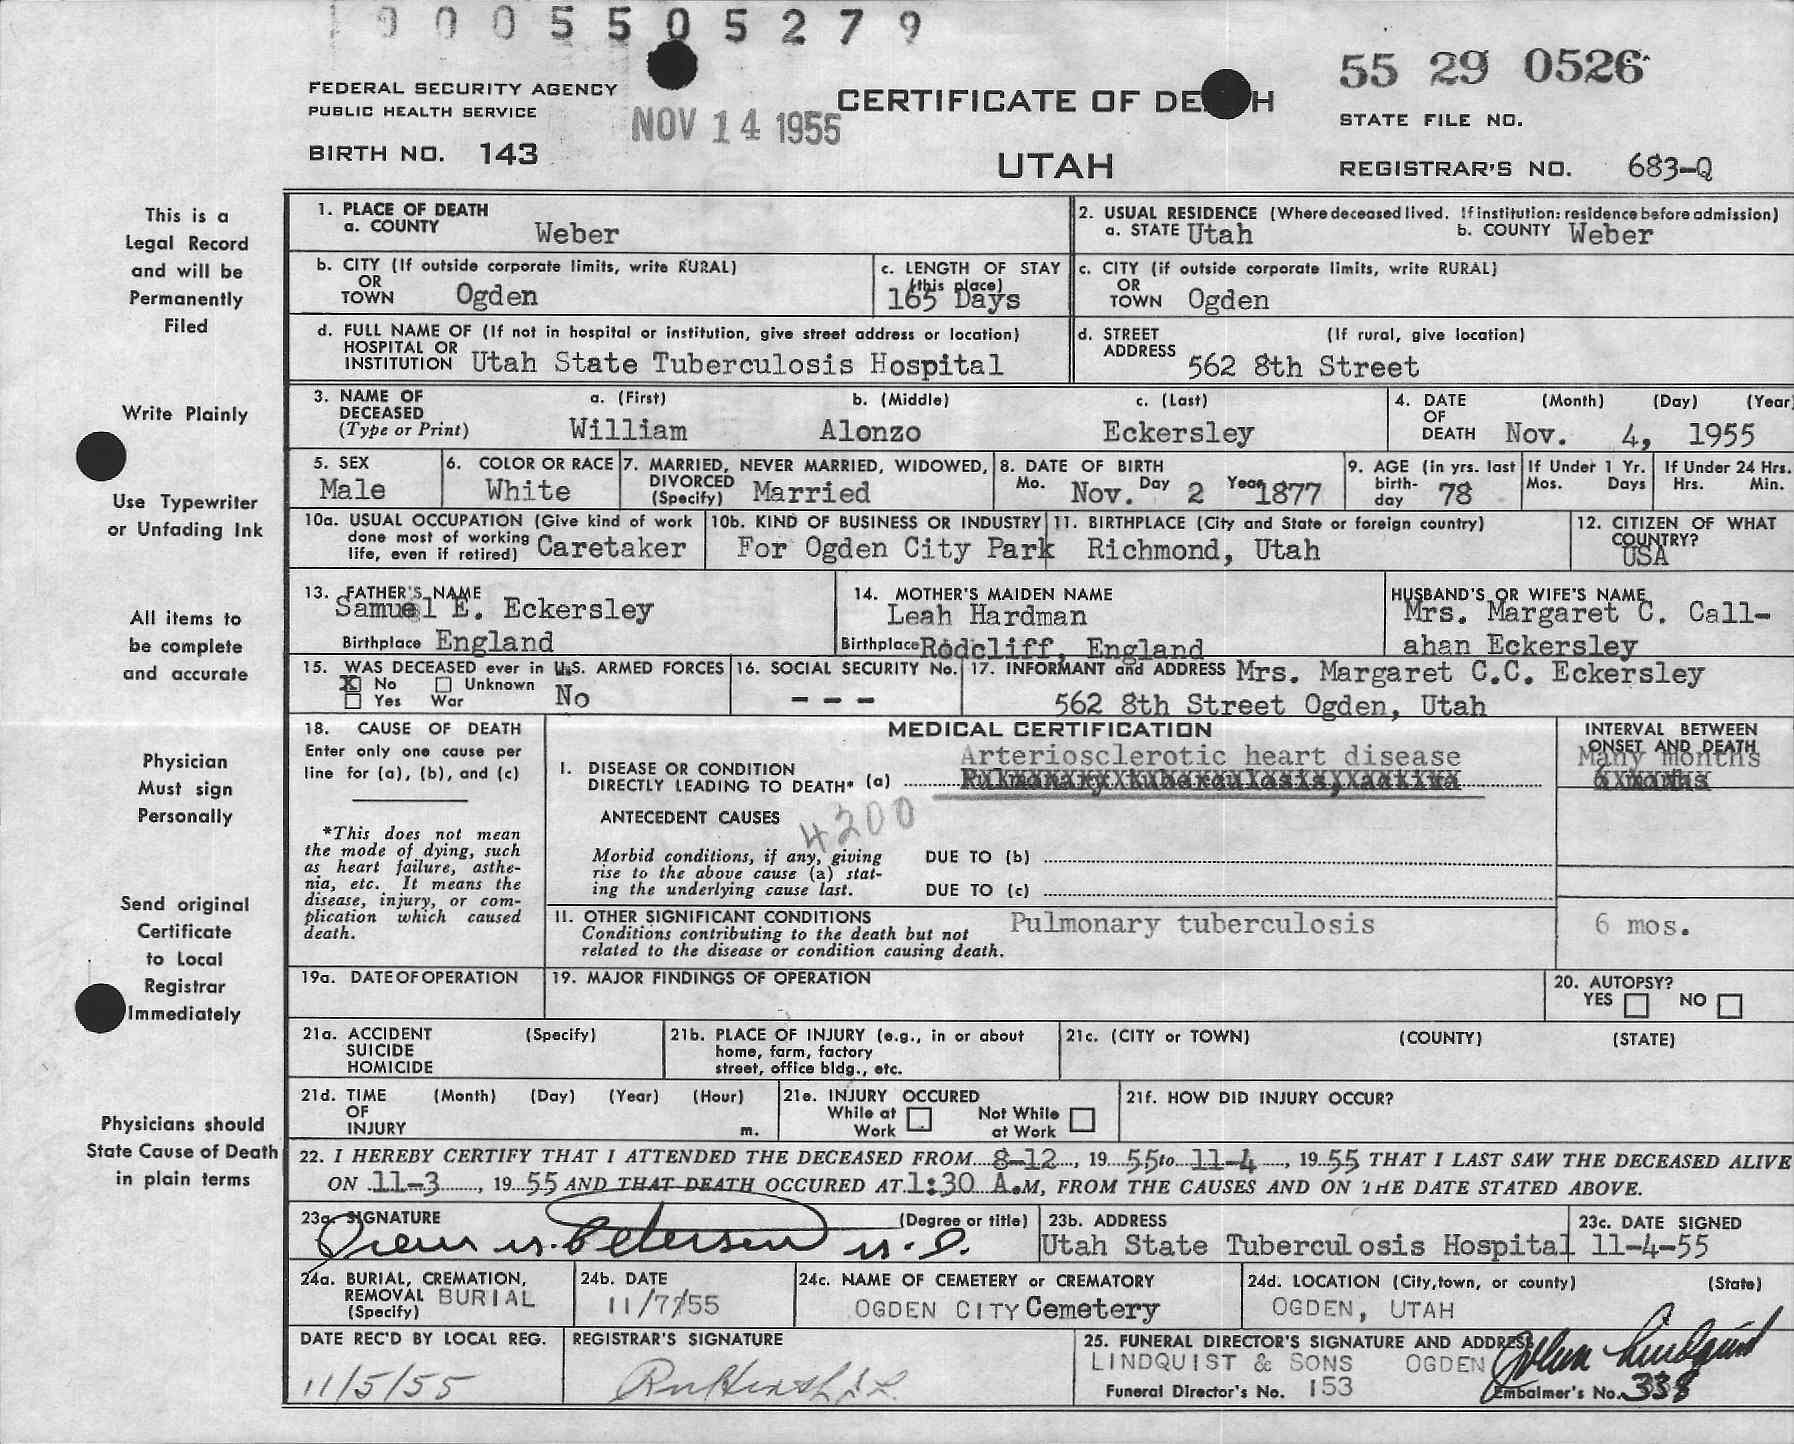 0005505279
55 29 0526
FEDERAL SECURITY AGENCY
PUBLIC HEALTH SERVICE
NOV 14 1955
CERTIFICATE OF DE H
STATE FILE NO.
BIRTH NO. 143
UTAH
REGISTRAR'S NO. 683-Q
This is a
Legal Record
and will be
Permanently
Filed
Write Plainly
Use Typewriter
or Unfading Ink
All items to
be complete
and accurate
Physician
Must sign
Personally
Send original
Certificate
to Local
Registrar
Immediately
Physicians should
State Cause of Death
in plain terms
1. PLACE OF DEATH
a. COUNTY Weber
2. USUAL RESIDENCE (Where deceased lived. If institution: residence before admission)
a. STATE Utah b. COUNTY Weber
b. CITY (If outside corporate limits, write RURAL)
OR
TOWN Ogden
c. LENGTH OF STAY
(this place)
165 Days
c. CITY (if outside corporate limits, write RURAL)
OR
TOWN Ogden
d. FULL NAME OF (If not in hospital or institution, give street address or location)
HOSPITAL OR
INSTITUTION Utah State Tuberculosis Hospital
d. STREET (If rural, give location)
ADDRESS
562 8th Street
3. NAME OF
DECEASED
(Type or Print)
a. (First) b. (Middle) c. (Last)
William Alonzo Eckersley
4. DATE (Month) (Day) (Year)
OF
DEATH Nov. 4, 1955
5. SEX
Male
6. COLOR OR RACE
White
7. MARRIED, NEVER MARRIED, WIDOWED,
DIVORCED
(Specify) Married
8. DATE OF BIRTH
Mo. Nov. Day 2 Year 1877
9. AGE (in yrs. last
birth-
day 78
If Under 1 Yr.
Mos. Days
If Under 24 Hrs.
Hrs. Min.
10a. USUAL OCCUPATION (Give kind of work
done most of working
life, even if retired) Caretaker
10b. KIND OF BUSINESS OR INDUSTRY
For Ogden City Park
11. BIRTHPLACE (City and State or foreign country)
Richmond, Utah
12. CITIZEN OF WHAT
COUNTRY?
USA
13. FATHER'S NAME
Samuel E. Eckersley
Birthplace England
14. MOTHER'S MAIDEN NAME
Leah Hardman
Birthplace Rodcliff, England
HUSBAND'S OR WIFE'S NAME
Mrs. Margaret C. Call-
ahan Eckersley
15. WAS DECEASED ever in U.S. ARMED FORCES
X No Unknown
Yes War No
16. SOCIAL SECURITY No.
- - -
17. INFORMANT and ADDRESS Mrs. Margaret C.C. Eckersley
562 8th Street Ogden, Utah
18. CAUSE OF DEATH
Enter only one cause per
line for (a), (b), and (c)
*This does not mean
the mode of dying, such
as heart failure, asthe-
nia, etc. It means the
disease, injury, or com-
plication which caused
death.
MEDICAL CERTIFICATION
Arteriosclerotic heart disease
I. DISEASE OR CONDITION
DIRECTLY LEADING TO DEATH* (a) Pulmonary tuberculosis, active
INTERVAL BETWEEN
ONSET AND DEATH
Many months
6 months
ANTECEDENT CAUSES
4200
Morbid conditions, if any, giving
rise to the above cause (a) stat-
ing the underlying cause last.
DUE TO (b)
DUE TO (c)
II. OTHER SIGNIFICANT CONDITIONS
Conditions contributing to the death but not
related to the disease or condition causing death.
Pulmonary tuberculosis
6 mos.
19a. DATE OF OPERATION
19. MAJOR FINDINGS OF OPERATION
20. AUTOPSY?
YES NO
21a. ACCIDENT (Specify)
SUICIDE
HOMICIDE
21b. PLACE OF INJURY (e.g., in or about
home, farm, factory
street, office bldg., etc.
21c. (CITY or TOWN) (COUNTY) (STATE)
21d. TIME (Month) (Day) (Year) (Hour)
OF
INJURY m.
21e. INJURY OCCURED
While at Not While
Work at Work
21f. HOW DID INJURY OCCUR?
22. I HEREBY CERTIFY THAT I ATTENDED THE DECEASED FROM 8-12, 19 55 to 11-4, 19 55 THAT I LAST SAW THE DECEASED ALIVE
ON 11-3, 19 55 AND THAT DEATH OCCURED AT 1:30 A.M, FROM THE CAUSES AND ON THE DATE STATED ABOVE.
23a. SIGNATURE (Degree or title)
Petersen M.D.
23b. ADDRESS
Utah State Tuberculosis Hospital
23c. DATE SIGNED
11-4-55
24a. BURIAL, CREMATION,
REMOVAL BURIAL
(Specify)
24b. DATE
11/7/55
24c. NAME OF CEMETERY or CREMATORY
OGDEN CITY Cemetery
24d. LOCATION (City, town, or county) (State)
OGDEN, UTAH
DATE REC'D BY LOCAL REG.
11/5/55
REGISTRAR'S SIGNATURE
25. FUNERAL DIRECTOR'S SIGNATURE AND ADDRESS
LINDQUIST & SONS OGDEN John Lindquist
Funeral Director's No. 153
Embalmer's No. 338